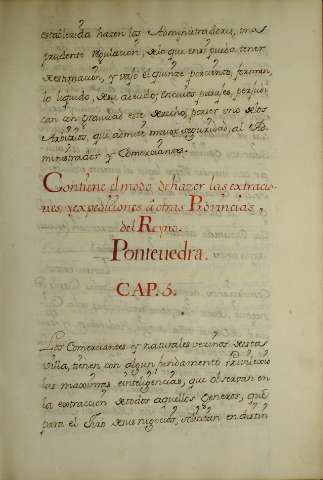 establecida hazen los Administradores, una
prudente regulacion, de lo que en si pueda tener
de estimación, y vajo el quinze porciento, forman
lo liquido, de su adeudo; en cuios parajes, perjudi
can con gravedad este derecho, por ser uno de los
Arbitrios, que admite maior seguridad, al Ad-
ministrador y Comerciantes.
Contiene el modo de hazer las extracio-
nes, y expediciones â otras Provincias,
del Reyno.
Pontevedra.
CAP. 5.
Los Comerciantes y naturales vezinos de esta
villa, tienen con algun fundamento
las maximas e inteligencias, que observan en
la extraccion de todos aquellos Generos, que
para el Giro de sus negocios, solicitan en distin